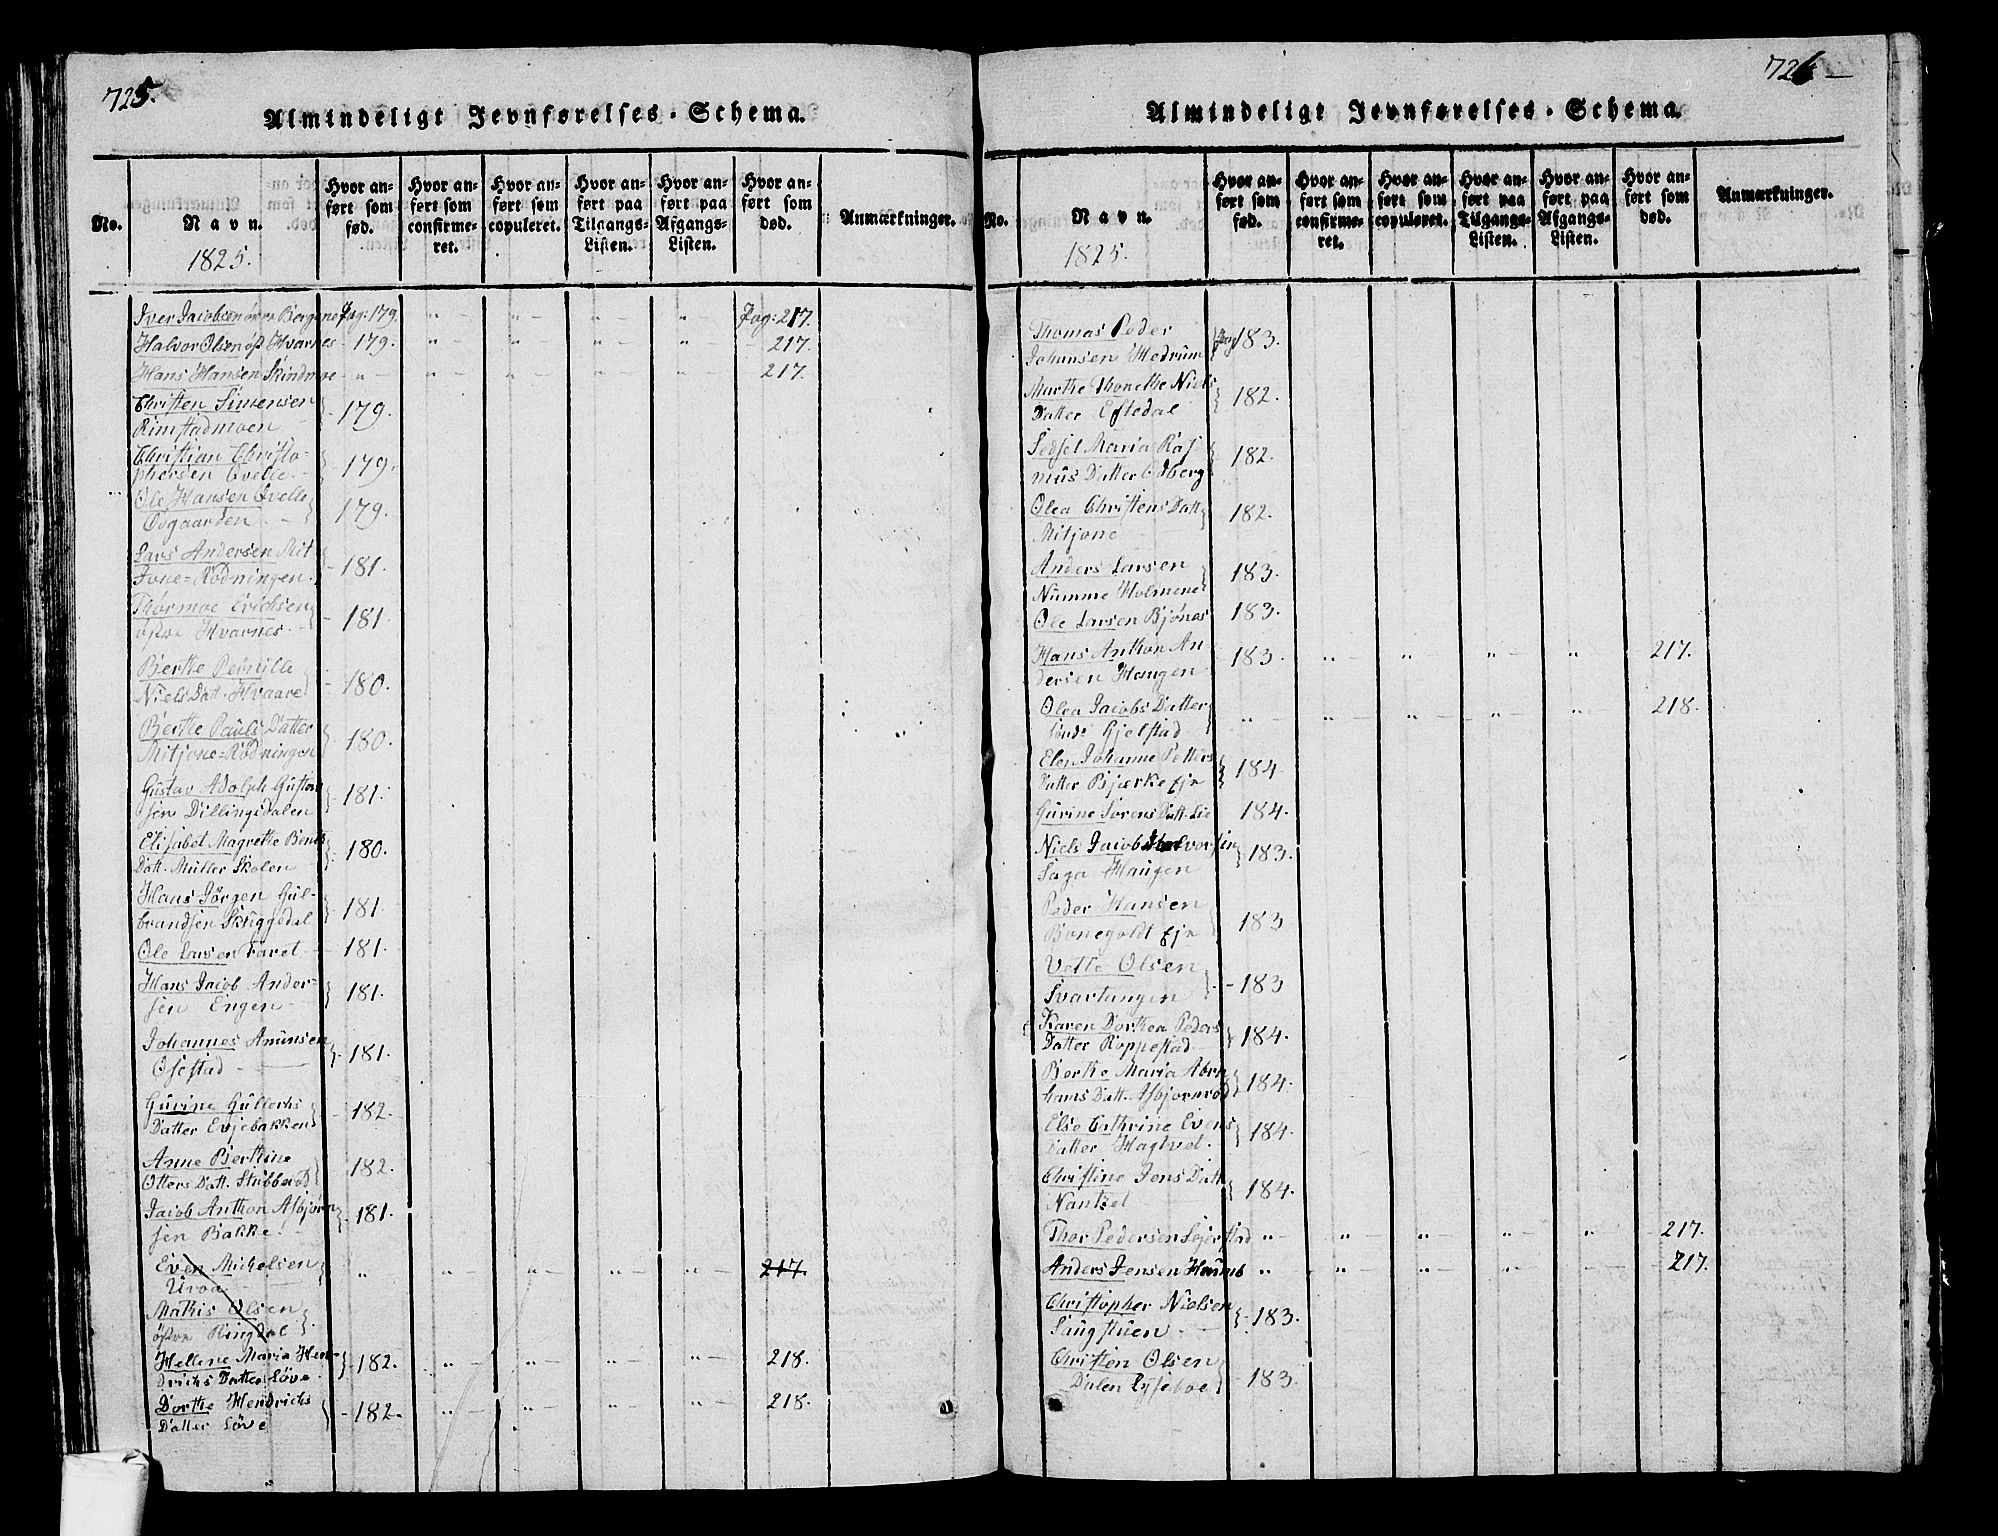 725.
Almindeligt Jevnførelses-Schema.
No.
Navn.
Hvor anført som fød.
Hvor anført som confirmeret.
Hvor anført som copuleret.
Hvor anført paa Tilgangs-Listen.
Hvor anført paa Afgangs-Listen.
Hvor anført som død.
Anmærkninger.
1825.
Iver Jacobsen Bergene Pag: 179. " — " — " — " Pag: 217.
Halvor Olsen øst Hvarnes - 179. " — " — " — " - 217.
Hans Hansen Skindmoe - " - " — " — " — " 217.
Christen Simensen
Rimstadmoen - 179.
Christian Christo-
phersen Qvelle - 179.
Ole Hansen Qvelle
Ovgaarden - 179.
Lars Andersen Mit
Jone=Rødningen. - 181.
Thormoe Erichsen
østre Hvarnes - 181
Berthe Pernille
Niels Datt. Hvaare - 180.
Berthe Pauls Datter
Mitjone=Rødningen - 180.
Gustav Adolph Gustav
sen Dillingsdalen - 181.
Elisabet Magrethe Bents
Datt. Muller Skolen - 180.
Hans Jørgen Gul-
brandsen Skuggedal 181.
Ole Larsen Faret - 181.
Hans Jacob Ander-
sen Engen - 181.
Johannes Amunsen
Osestad - 181.
Gurine Gullechs
Datter Evjebakken - 182.
Anne Berthine
Otters Datt. Stubberød - 182.
Jacob Anthon Asbjørn
sen Bakke - 181.
Even Michelsen
Uroa " " — " — " — " — 217.
Mathis Olsen
østre Ringdal
Hellene Maria Hen-
drichs Datter Løve - 182. " — " — " — " — 218.
Dorthe Hendrichs
Datter Løve - 182. " — " — " — " — 218.
726
Almindeligt Jevnførelses-Schema.
No.
Navn.
Hvor anført som fød.
Hvor anført som confirmeret.
Hvor anført som copuleret.
Hvor anført paa Tilgangs-Listen.
Hvor anført paa Afgangs-Listen.
Hvor anført som død.
Anmærkninger.
1825.
Thomas Peder
Johansen Hedrum Pag 183.
Marthe Thonethe Niels
Datter Eftedal 182.
Sedsel Maria Ras
mus Datter Odberg 182.
Olea Christens Datt
Mitjone 182.
Anders Larsen
Numme Holmene 183.
Ole Larsen Bjønes 183.
Hans Anthon An
dersen Haugen 183. " — " — " — " — 217.
Olea Jacobs Datter
søndr Gjelstad " — " — " — " — " — 218.
Elen Johanne Petters
Datter Bjerke Eje 184.
Gurine Sørens Datt. Lie 184.
Niels Jacob Halvorsen
Saga Haugen 183.
Peder Hansen
Bonegoldt Eje 183
Vetle Olsen
Svartangen - 183
Karen Dorthea Peders
Datter Roppestad 184.
Berthe Maria Abra
hams Datt. Asbjørnrød 184.
Else Cathrine Evens
Datter Hagtvet. 184.
Christine Jens Datt
Nantset 184.
Thor Pedersen Sejerstad " — " — " — " — " — 217.
Anders Jensen Haumb " — " — " — " — 217.
Christopher Nielsen
Saugstuen 183.
Christen Olsen
Dalen Lyseboe 183.